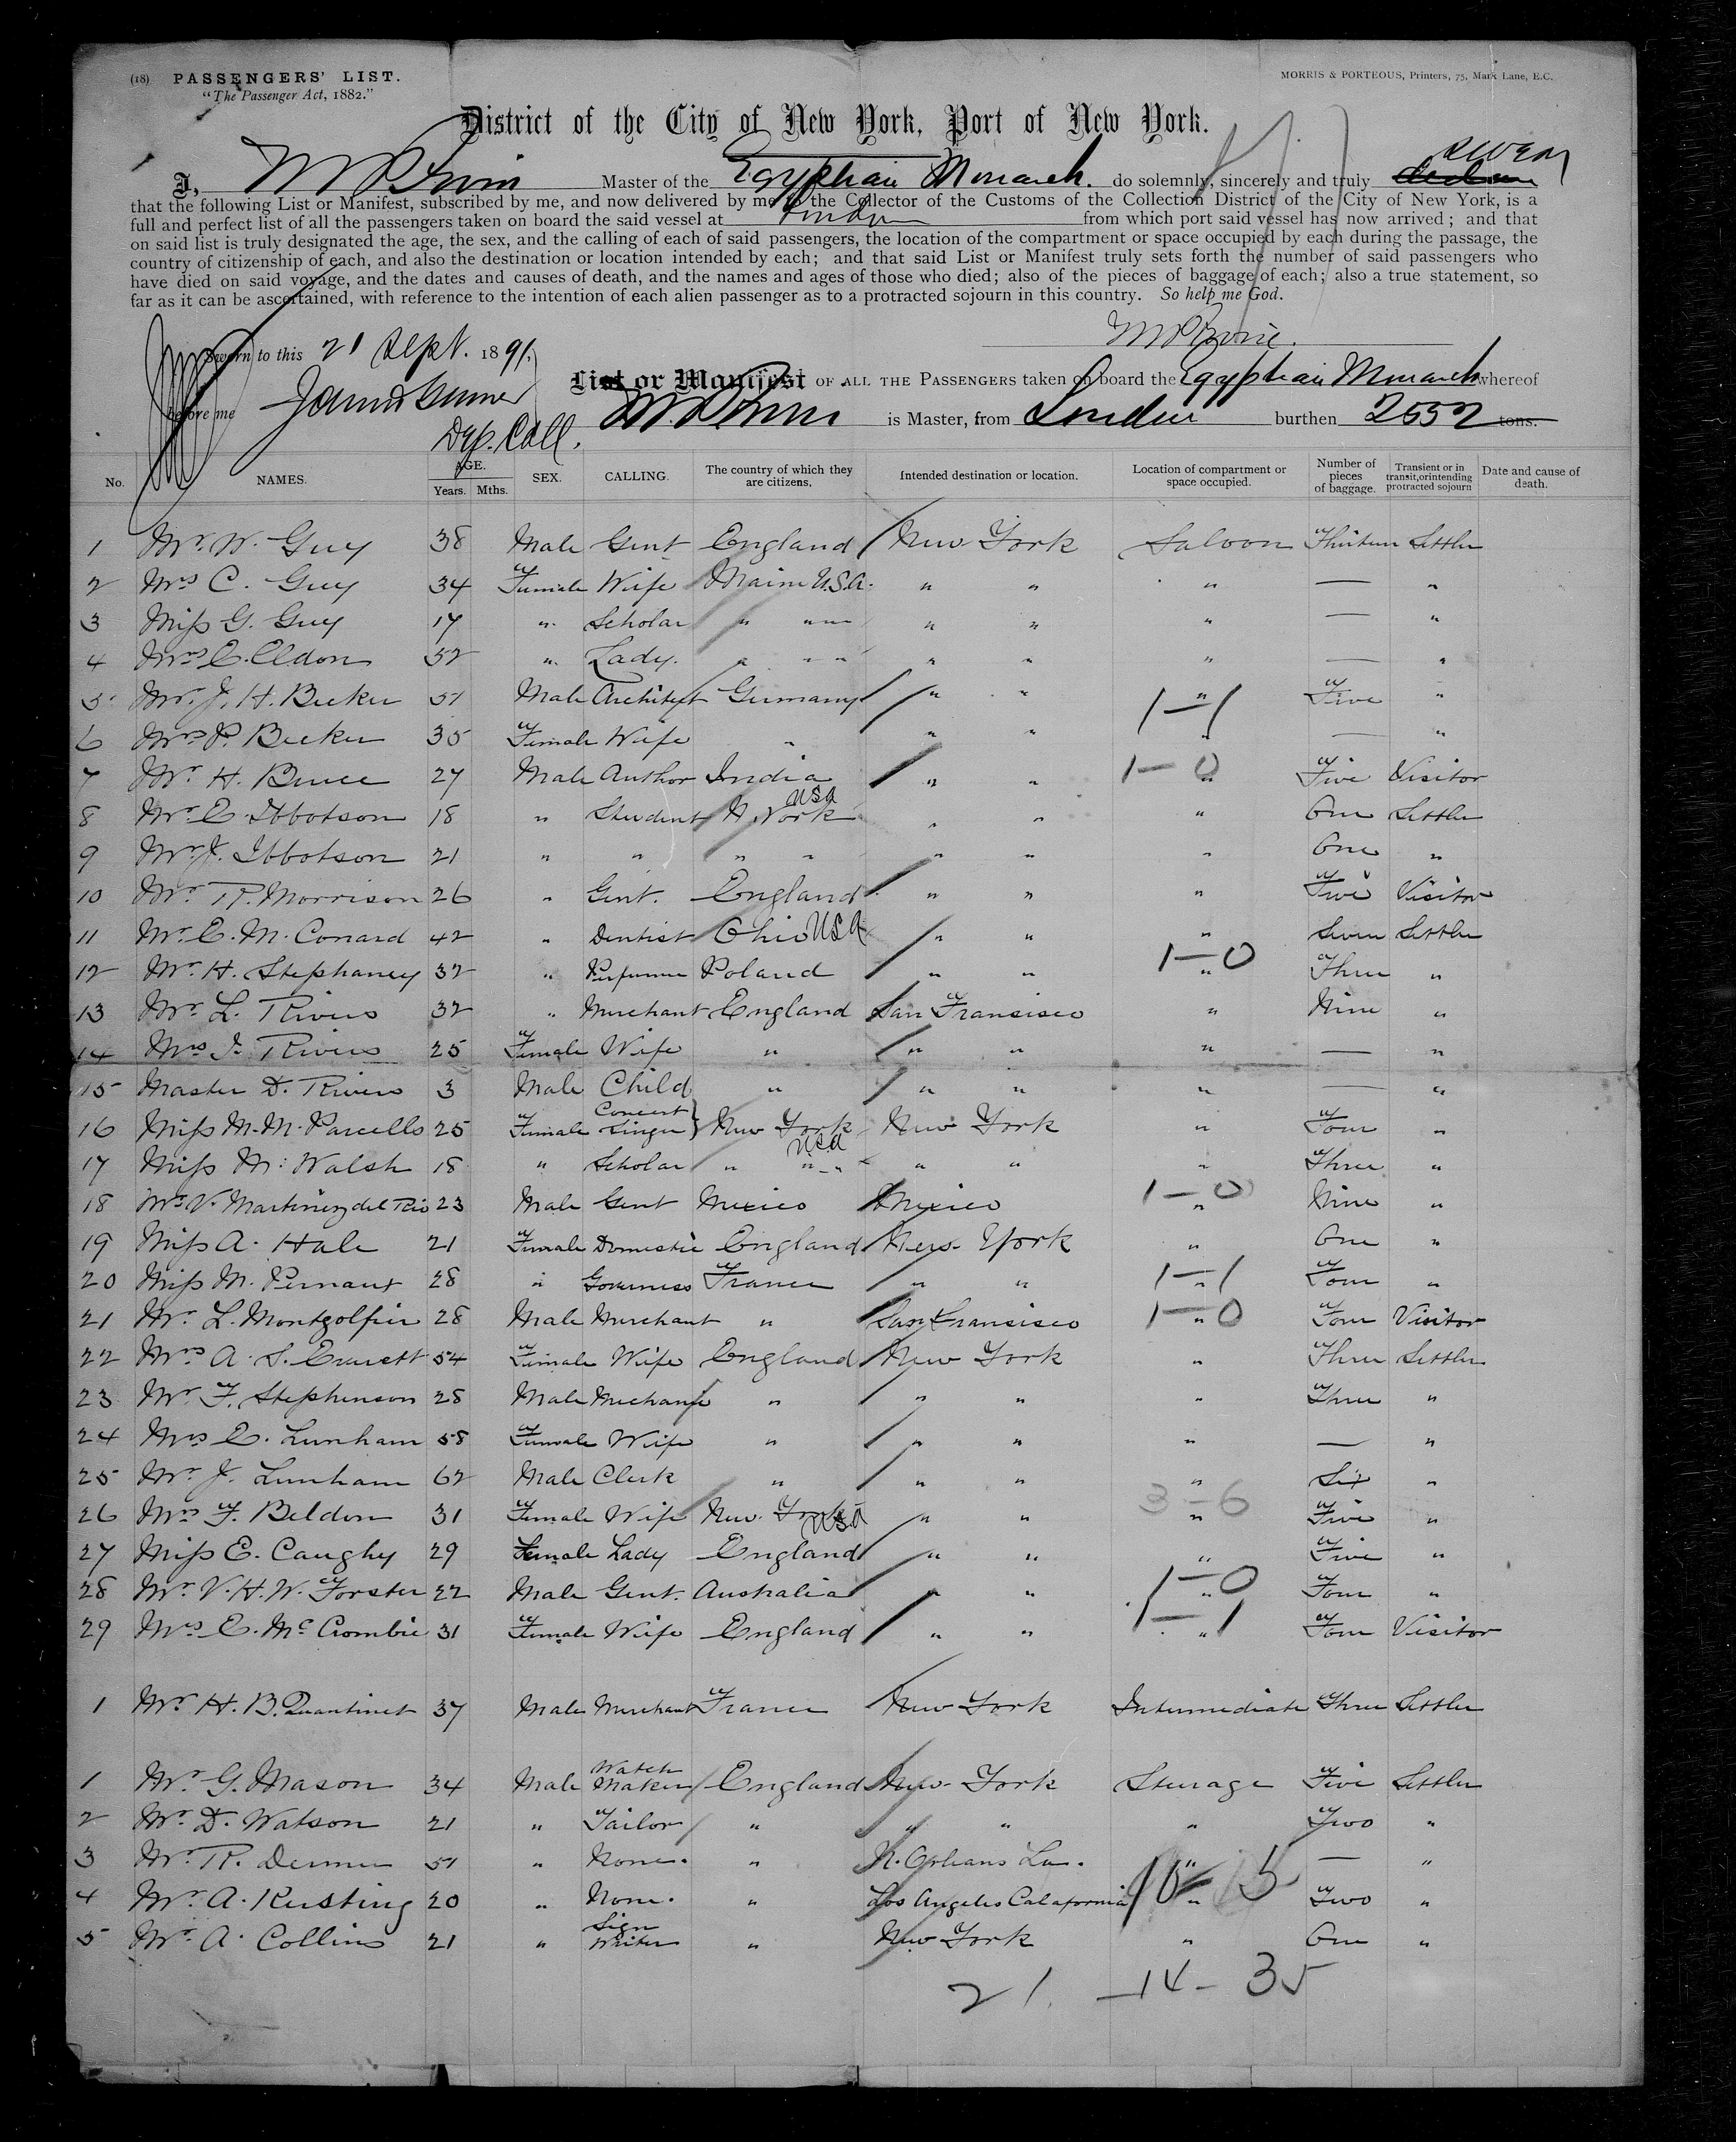 (18) PASSENGERS' LIST.
"The Passenger Act, 1882."
MORRIS & PORTEOUS, Printers, 75, Mark Lane, E.C.
District of the City of New York, Port of New York.
swear
I, Master of the Egyptian Monarch. do solemnly, sincerely and truly
that the following List or Manifest, subscribed by me, and now delivered by me to the Collector of the Customs of the Collection District of the City of New York, is a
full and perfect list of all the passengers taken on board the said vessel at London from which port said vessel has now arrived; and that
on said list is truly designated the age, the sex, and the calling of each of said passengers, the location of the compartment or space occupied by each during the passage, the
country of citizenship of each, and also the destination or location intended by each; and that said List or Manifest truly sets forth the number of said passengers who
have died on said voyage, and the dates and causes of death, and the names and ages of those who died; also of the pieces of baggage of each; also a true statement, so
far as it can be ascertained, with reference to the intention of each alien passenger as to a protracted sojourn in this country. So help me God.
Sworn to this 21 Sept. 1891.
List or Manifest OF ALL THE PASSENGERS taken on board the Egyptian Monarch whereof
before me
is Master, from London burthen 2552 tons.
Dep. Coll.
No. NAMES. AGE. Years. Mths. SEX. CALLING. The country of which they are citizens. Intended destination or location. Location of compartment or space occupied. Number of pieces of baggage. Transient or in transit, or intending protracted sojourn Date and cause of death.
1 Mr. W. Guy 38 Male Gent England New York Saloon Thirteen Settler
2 Mrs C. Guy 34 Female Wife Maine U.S.A. " " " — "
3 Miss G. Guy 17 " Scholar " " " " " — "
4 Mrs E. Eldon 52 " Lady. " " " " " — "
5 Mr. J. H. Becker 51 Male Architect Germany " " " 1-1 Five "
6 Mrs P. Becker 35 Female Wife " " " " — "
7 Mr H. Bruce 27 Male Author India " " " 1-0 Five Visitor
8 Mr E. Ibbotson 18 " Student N. York USA " " " One Settler
9 Mr J. Ibbotson 21 " " " " " " " One "
10 Mr R. Morrison 26 " Gent. England " " " Five Visitor
11 Mr. E. M. Conard 42 " Dentist Ohio USA " " " Seven Settler
12 Mr. H. Stephaney 32 " Perfumer Poland " " " 1-0 Three "
13 Mr L. Rivers 32 " Merchant England San Fransisco " Nine "
14 Mrs I. Rivers 25 Female Wife " " " " — "
15 Master D. Rivers 3 Male Child " " " " — "
16 Miss M. M. Parcells 25 Female Concert Singer } New York New York " Four "
17 Miss M. Walsh 18 " Scholar " USA " " " " Three "
18 Mr V. Martinez del Rio 23 Male Gent Mexico Mexico " 1-0 Nine "
19 Miss A. Hale 21 Female Domestic England New York " One "
20 Miss M. Pernaut 28 " Governess France " " " 1-1 Four "
21 Mr. L. Montgolfier 28 Male Merchant " San Fransisco " 1-0 Four Visitor
22 Mrs A. S. Everett 54 Female Wife England New York " Three Settler
23 Mr. F. Stephenson 28 Male Mechanic " " " " Three "
24 Mrs E. Lunham 58 Female Wife " " " " — "
25 Mr J. Lunham 62 Male Clerk " " " " Six "
26 Mrs F. Beldon 31 Female Wife New York USA " " " 3-6 Five "
27 Miss E. Caughy 29 Female Lady England " " " Five "
28 Mr. V. H. W. Forster 22 Male Gent. Australia " " " 1-0 Four "
29 Mrs E. McCrombie 31 Female Wife England " " " 1-1 Four Visitor
1 Mr H. B. Quantinet 37 Male Merchant France New York Intermediate Three Settler
1 Mr G. Mason 34 Male Watch Maker England New York Steerage Five Settler
2 Mr. D. Watson 21 " Tailor " " " " Two "
3 Mr. R. 51 " None. " N. Orleans La. " — "
4 Mr. A. Kusting 20 " None. " Los Angeles Calafornia " Two "
5 Mr. A. Collins 21 " Sign Writer " New York " One "
21. -14- 35